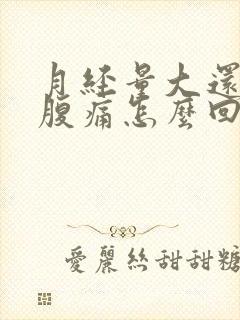 月經量大還
腹痛怎麼回
愛麗絲甜甜糖